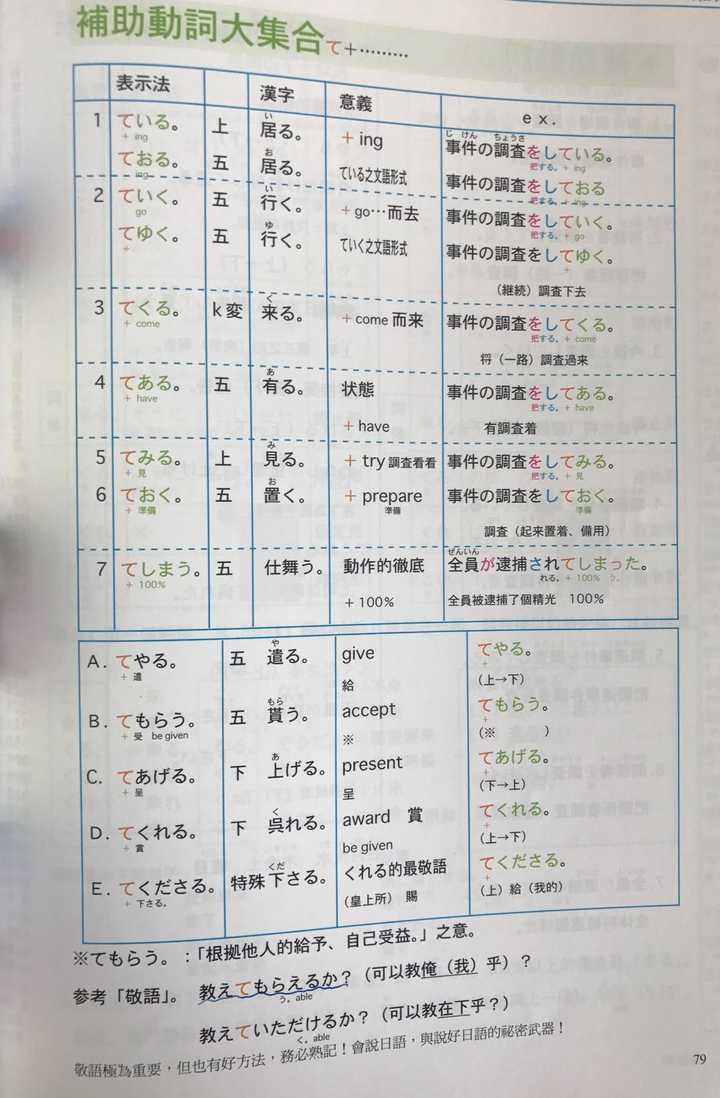 補助動詞大集合て+………
表示法 漢字 意義 ex.
1 ている。 上 居る。 +ing 事件の調査をしている。
+ ing い じけん ちょうさ 把する。+ ing
ておる。 五 居る。 ている之文語形式 事件の調査をしておる
ing お 把する。+ ing
2 ていく。 五 行く。 +go…而去 事件の調査をしていく。
go い 把する。+ go
てゆく。 五 行く。 ていく之文語形式 事件の調査をしてゆく。
+ ゆ
(継続)調査下去
3 てくる。 k変 来る。 +come 而来 事件の調査をしてくる。
+ come く 把する。+ come
将(一路)調査過来
4 てある。 五 有る。 状態 事件の調査をしてある。
+ have あ 把する。+ have
+ have 有調査着
5 てみる。 上 見る。 + try 調査看看 事件の調査をしてみる。
+ 見 み 把する。+ 見
6 ておく。 五 置く。 + prepare 事件の調査をしておく。
+ 準備 お 準備 + 準備
調査(起来置着、備用)
7 てしまう。 五 仕舞う。 動作的徹底 全員が逮捕されてしまった。
+ 100% ぜんいん れる。+ 100% う。
+ 100% 全員被逮捕了個精光 100%
A. てやる。 五 遣る。 give てやる。
+ 遣 や 給 + (上→下)
B. てもらう。 五 貰う。 accept てもらう。
+ 受 be given もら ※ + (※ )
C. てあげる。 下 上げる。 present てあげる。
+ 呈 あ 呈 + (下→上)
D. てくれる。 下 呉れる。 award 賞 てくれる。
+ 賞 く be given + (上→下)
E. てくださる。 特殊 下さる。 くれる的最敬語 てくださる。
+ 下さる。 くだ (皇上所) 賜 + (上)給(我的)
※てもらう。:「根拠他人的給予、自己受益。」之意。
参考「敬語」。 教えてもらえるか?(可以教俺(我)乎)?
う。able
教えていただけるか?(可以教在下乎?)
く。able
敬語極為重要,但也有好方法,務必熟記!會說日語,與說好日語的祕密武器!
79